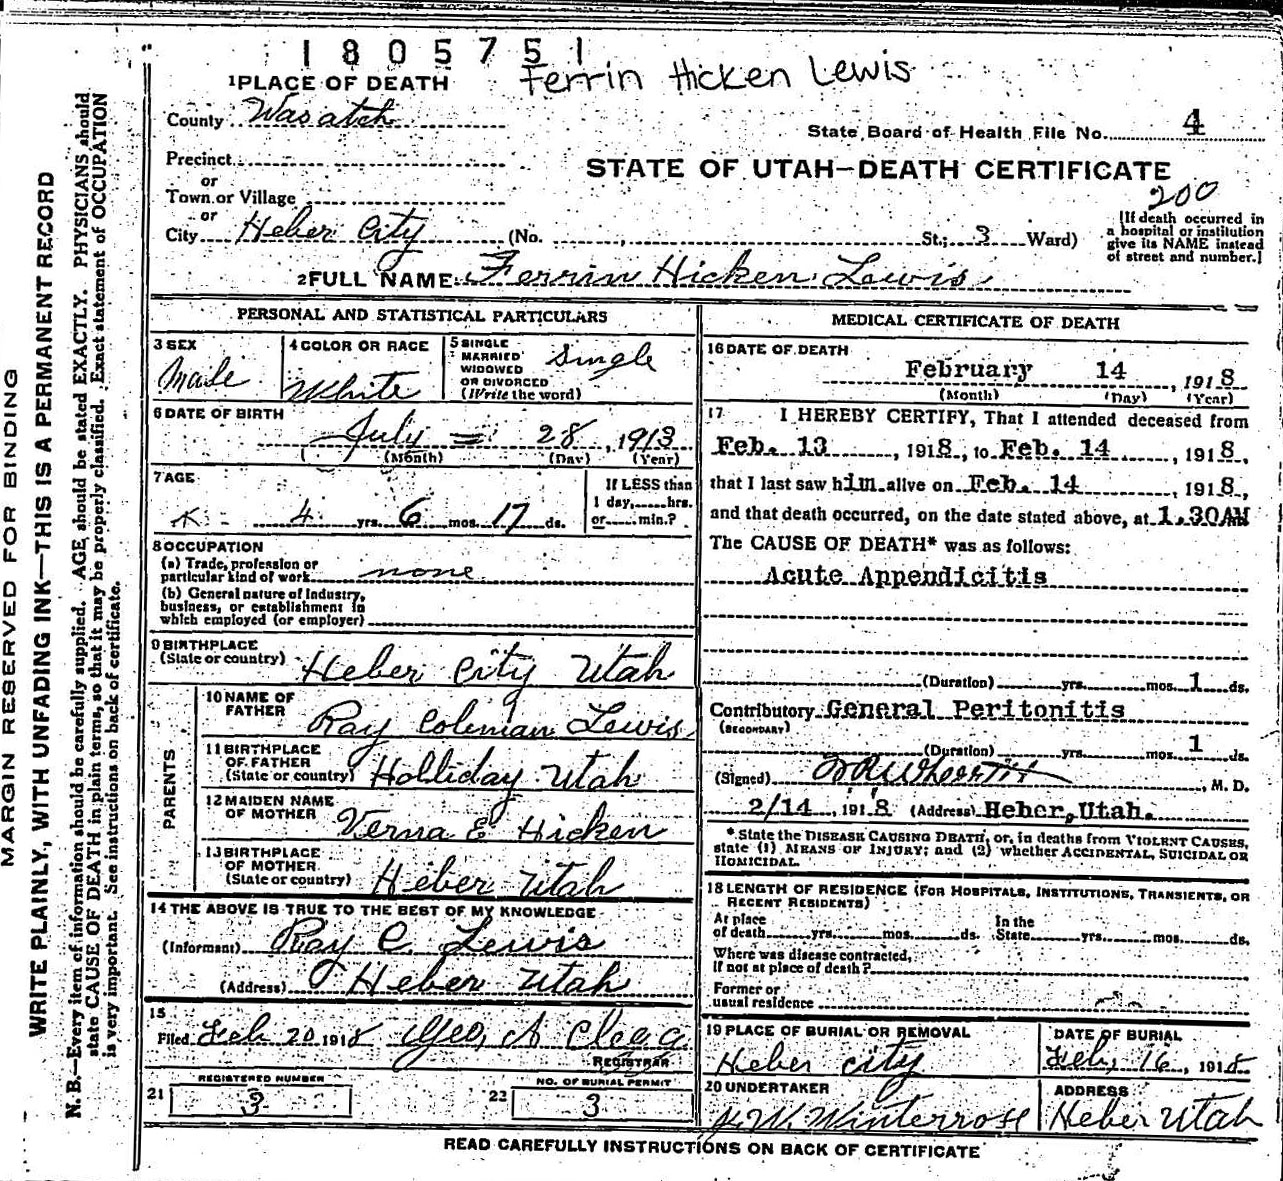 1805751
Ferrin Hicken Lewis
1 PLACE OF DEATH
County Wasatch
State Board of Health File No. 4
Precinct
or
STATE OF UTAH—DEATH CERTIFICATE
Town or Village
or
200
City Heber City (No. , St.; 3 Ward)
[If death occurred in
a hospital or institution
give its NAME instead
of street and number.]
2 FULL NAME Ferrin Hicken Lewis
PERSONAL AND STATISTICAL PARTICULARS
3 SEX
Male
4 COLOR OR RACE
White
5 SINGLE
MARRIED
WIDOWED
OR DIVORCED
(Write the word)
Single
6 DATE OF BIRTH
July 28, 1913
(Month) (Day) (Year)
7 AGE
4 yrs. 6 mos. 17 ds.
If LESS than
1 day, hrs.
or min.?
8 OCCUPATION
(a) Trade, profession or
particular kind of work none
(b) General nature of Industry,
business, or establishment in
which employed (or employer)
9 BIRTHPLACE
(State or country) Heber City Utah
PARENTS
10 NAME OF
FATHER
Ray Coleman Lewis
11 BIRTHPLACE
OF FATHER
(State or country) Holliday Utah
12 MAIDEN NAME
OF MOTHER Verna E Hicken
13 BIRTHPLACE
OF MOTHER
(State or country) Heber Utah
14 THE ABOVE IS TRUE TO THE BEST OF MY KNOWLEDGE
(Informant) Ray C. Lewis
(Address) Heber Utah
15
Filed Feb 20 1918 Geo, A Clegg
REGISTRAR
21 REGISTERED NUMBER
3
22 NO. OF BURIAL PERMIT
3
MEDICAL CERTIFICATE OF DEATH
16 DATE OF DEATH
February 14, 1918
(Month) (Day) (Year)
17 I HEREBY CERTIFY, That I attended deceased from
Feb. 13, 1918, to Feb. 14, 1918,
that I last saw him alive on Feb. 14, 1918,
and that death occurred, on the date stated above, at 1.30AM
The CAUSE OF DEATH* was as follows:
Acute Appendicitis
(Duration) yrs. mos. 1 ds.
Contributory General Peritonitis
(SECONDARY)
(Duration) yrs. mos. 1 ds.
(Signed) , M. D.
2/14, 1918 (Address) Heber, Utah.
*State the DISEASE CAUSING DEATH, or, in deaths from VIOLENT CAUSES,
state (1) MEANS OF INJURY; and (2) whether ACCIDENTAL, SUICIDAL OR
HOMICIDAL.
18 LENGTH OF RESIDENCE (FOR HOSPITALS, INSTITUTIONS, TRANSIENTS, OR
RECENT RESIDENTS)
At place
of death yrs. mos. ds.
In the
State yrs. mos. ds.
Where was disease contracted,
If not at place of death?
Former or
usual residence
19 PLACE OF BURIAL OR REMOVAL
Heber City
DATE OF BURIAL
Feb, 16, 1918
20 UNDERTAKER
W. Winterrose
ADDRESS
Heber Utah
READ CAREFULLY INSTRUCTIONS ON BACK OF CERTIFICATE
MARGIN RESERVED FOR BINDING
WRITE PLAINLY, WITH UNFADING INK—THIS IS A PERMANENT RECORD
N. B.—Every item of information should be carefully supplied. AGE should be stated EXACTLY. PHYSICIANS should
state CAUSE OF DEATH in plain terms, so that it may be properly classified. Exact statement of OCCUPATION
is very important. See instructions on back of certificate.